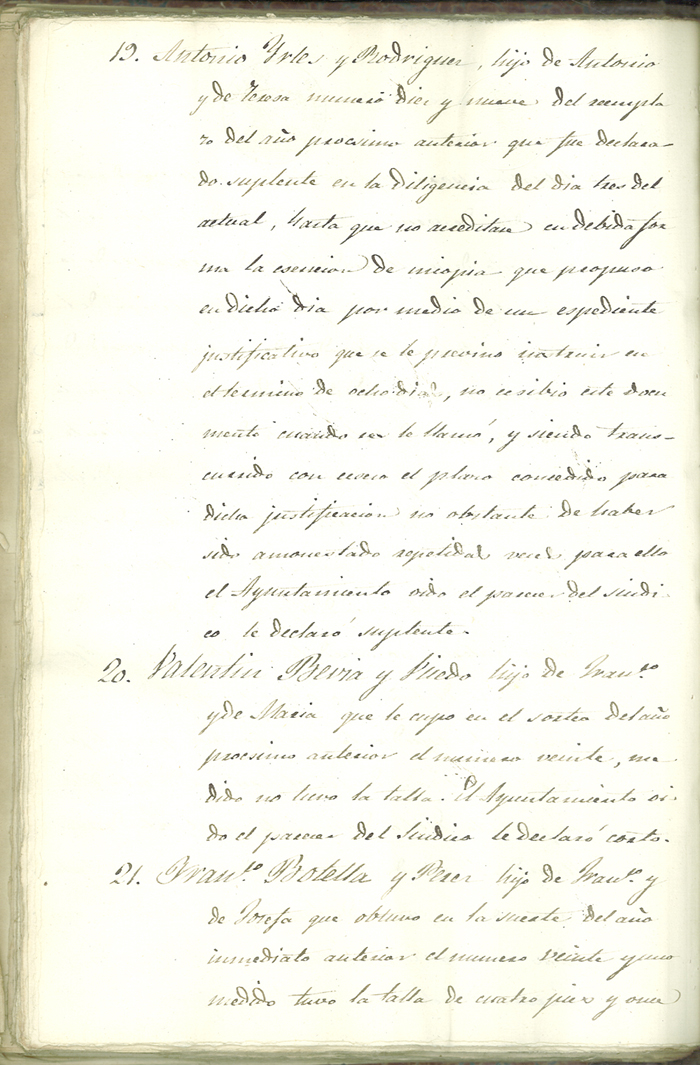 19. Antonio Yrles y Rodriguez, hijo de Antonio
y de Teresa numero diez y nueve del reempla
zo del año procsimo anterior que fue declara-
do suplente en la diligencia del dia tres del
actual, hasta que no acreditare en debida for
ma la esencion de miopia que propuso
en dicho dia por medio de un espediente
justificativo que se le previno instruir en
el termino de ocho dias, no ecsibio este docu
mento cuando se le llamó, y siendo trans-
currido con eceso el plazo concedido para
dicha justificacion no obstante de haber
sido amonestado repetidas veces para ello
el Ayuntamiento oido el parecer del sindi-
co le declaró suplente.
20. Valentin Bevia y Pinedo hijo de Fran.co
y de Maria que le cupo en el sorteo del año
procsimo anterior el numero veinte, me
dido no tuvo la talla. El Ayuntamiento oi-
do el parecer del Sindico le declaró corto.
21. Fran.co Botella y Perez hijo de Fran.co y
de Josefa que obtuvo en la suerte del año
inmediato anterior el numero veinte y uno
medido tuvo la talla de cuatro pies y once